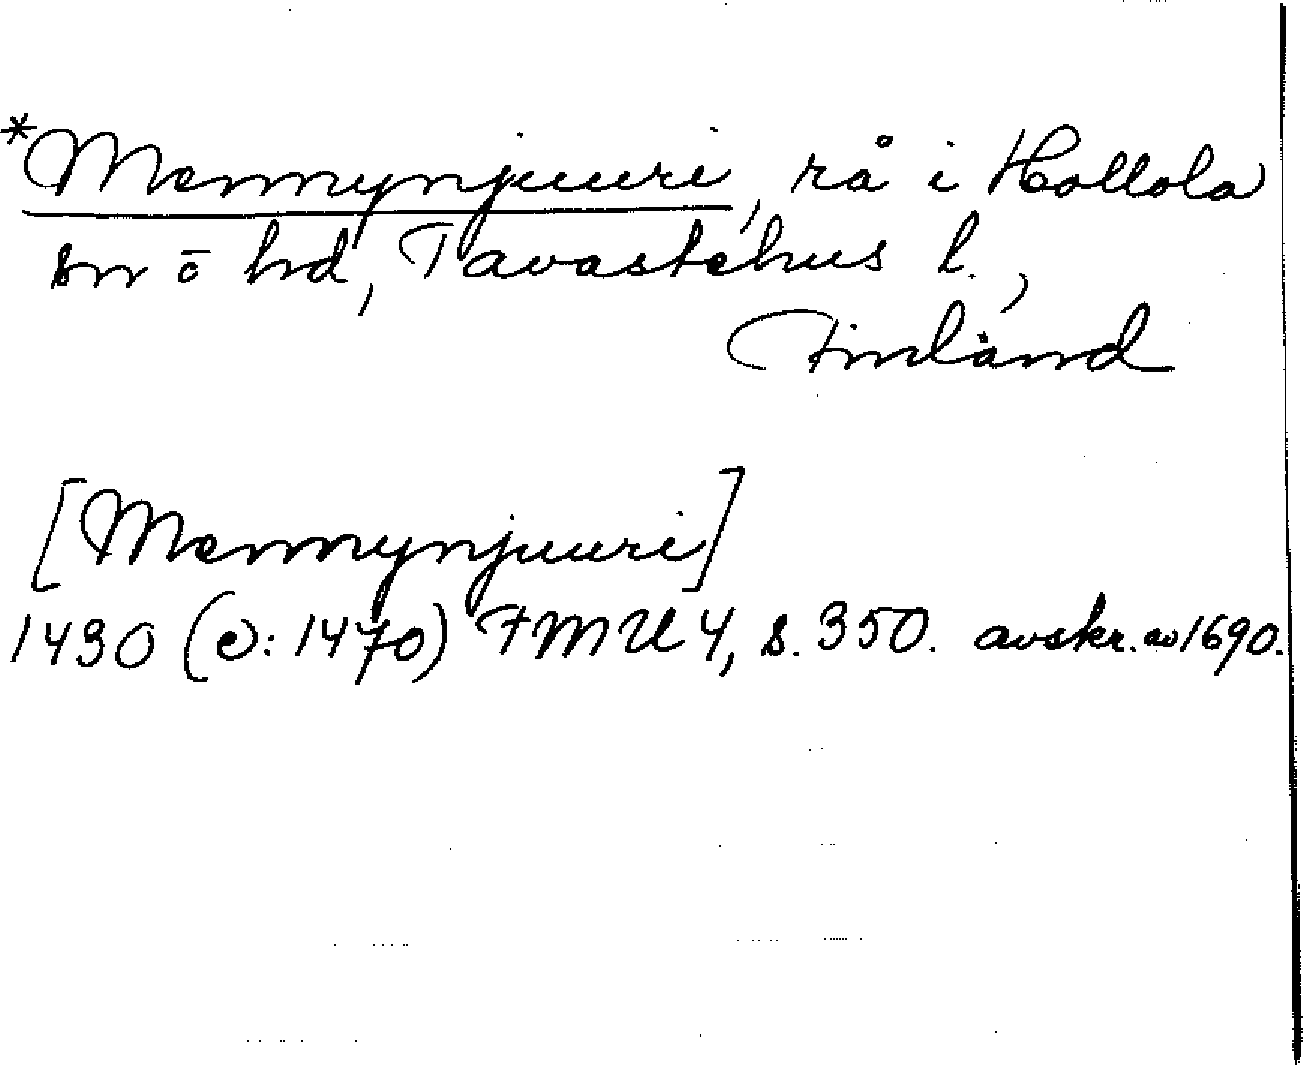 *Mennynjuuri, rå i Hollola
sn ō hd, Tavastehus l.,
Finland
[Mennynjuuri]
1430 (e: 1470) FMU 4, s. 350. avskr. av 1690.